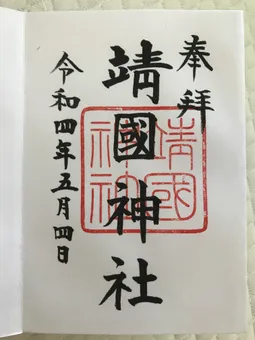 奉拝
靖國神社
靖國神社
令和四年五月四日